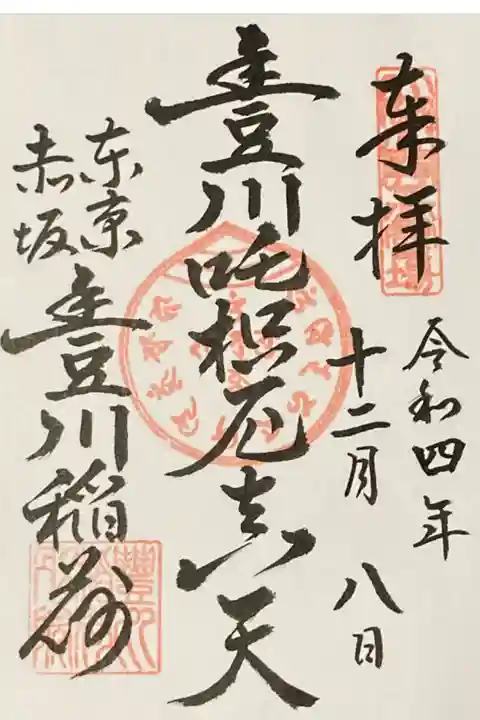 奉拝
令和四年
十二月
八日
豊川吒枳尼真天
東京
赤坂
豊川稲荷